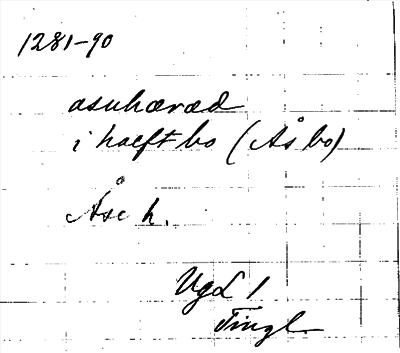 1281-90
asuhæræd
i hæft bo (Åsbo)
Åse h.
Vgd 1
Tingl